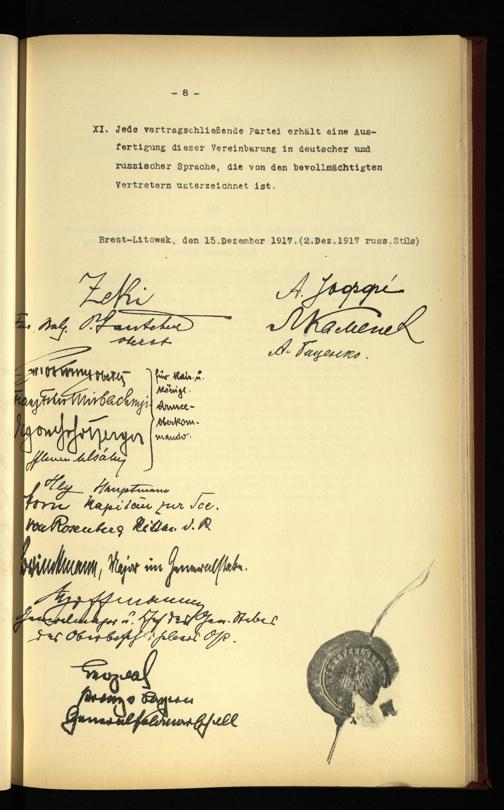 - 8 -
XI. Jede vertragschließende Partei erhält eine Aus-
fertigung dieser Vereinbarung in deutscher und
russischer Sprache, die von den bevollmächtigten
Vertretern unterzeichnet ist.
Brest-Litowsk, den 15.Dezember 1917.(2.Dez.1917 russ.Stils)
Zeki
A. Іоффе
Für Bulg. P. Gantchew
Oberst
Л Каменев
А. Биценко.
für Kais. u.
Königl.
Armee-
oberkom-
mando.
Mirbach
Hey Hauptmann
Horn Kapitän zur See.
von Rosenberg
Brinckmann, Major im Generalstabe.
Hoffmann
Generalmajor u. Chef des Gen. Stabes
des Oberbefehlshabers Ost.
Leopold
Prinz v Bayern
Generalfeldmarschall